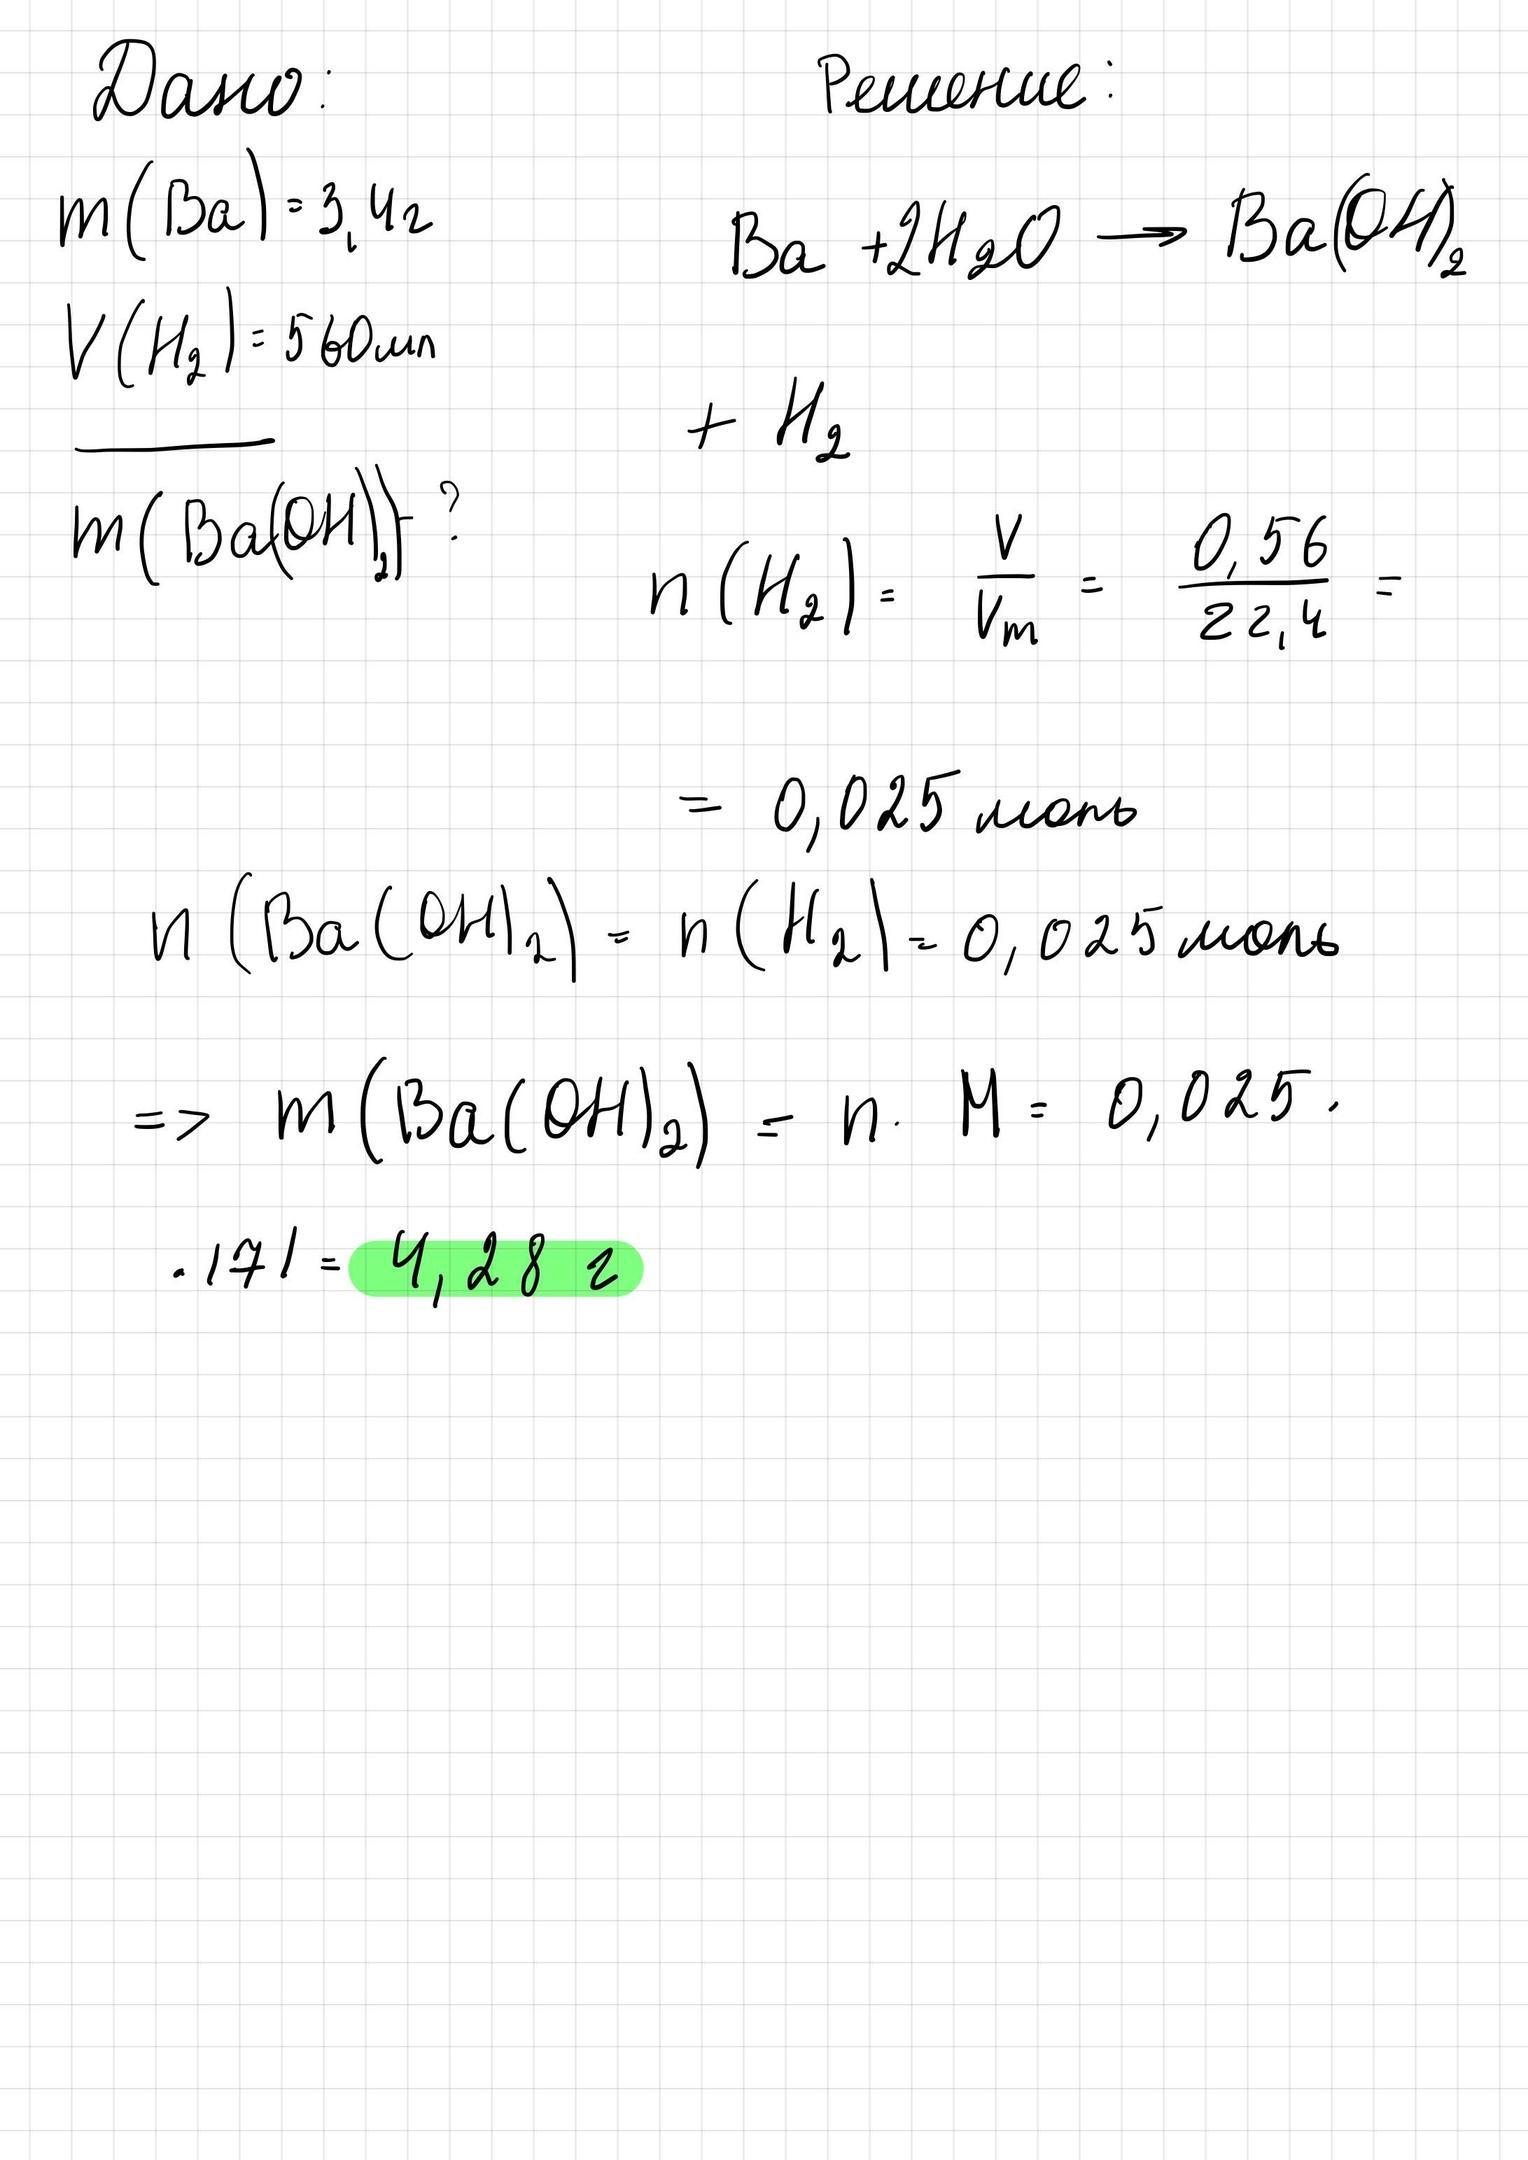 Дано:
m(Ba)=3,4г
V(H₂)=560мл
m(Ba(OH)₂)-?
Решение:
Ba +2H₂O → Ba(OH)₂
+ H₂
n(H₂)= V/Vm = 0,56/22,4 =
= 0,025 моль
n(Ba(OH)₂) = n(H₂)= 0,025 моль
=> m(Ba(OH)₂) = n · M = 0,025 ·
· 171 = 4,28 г